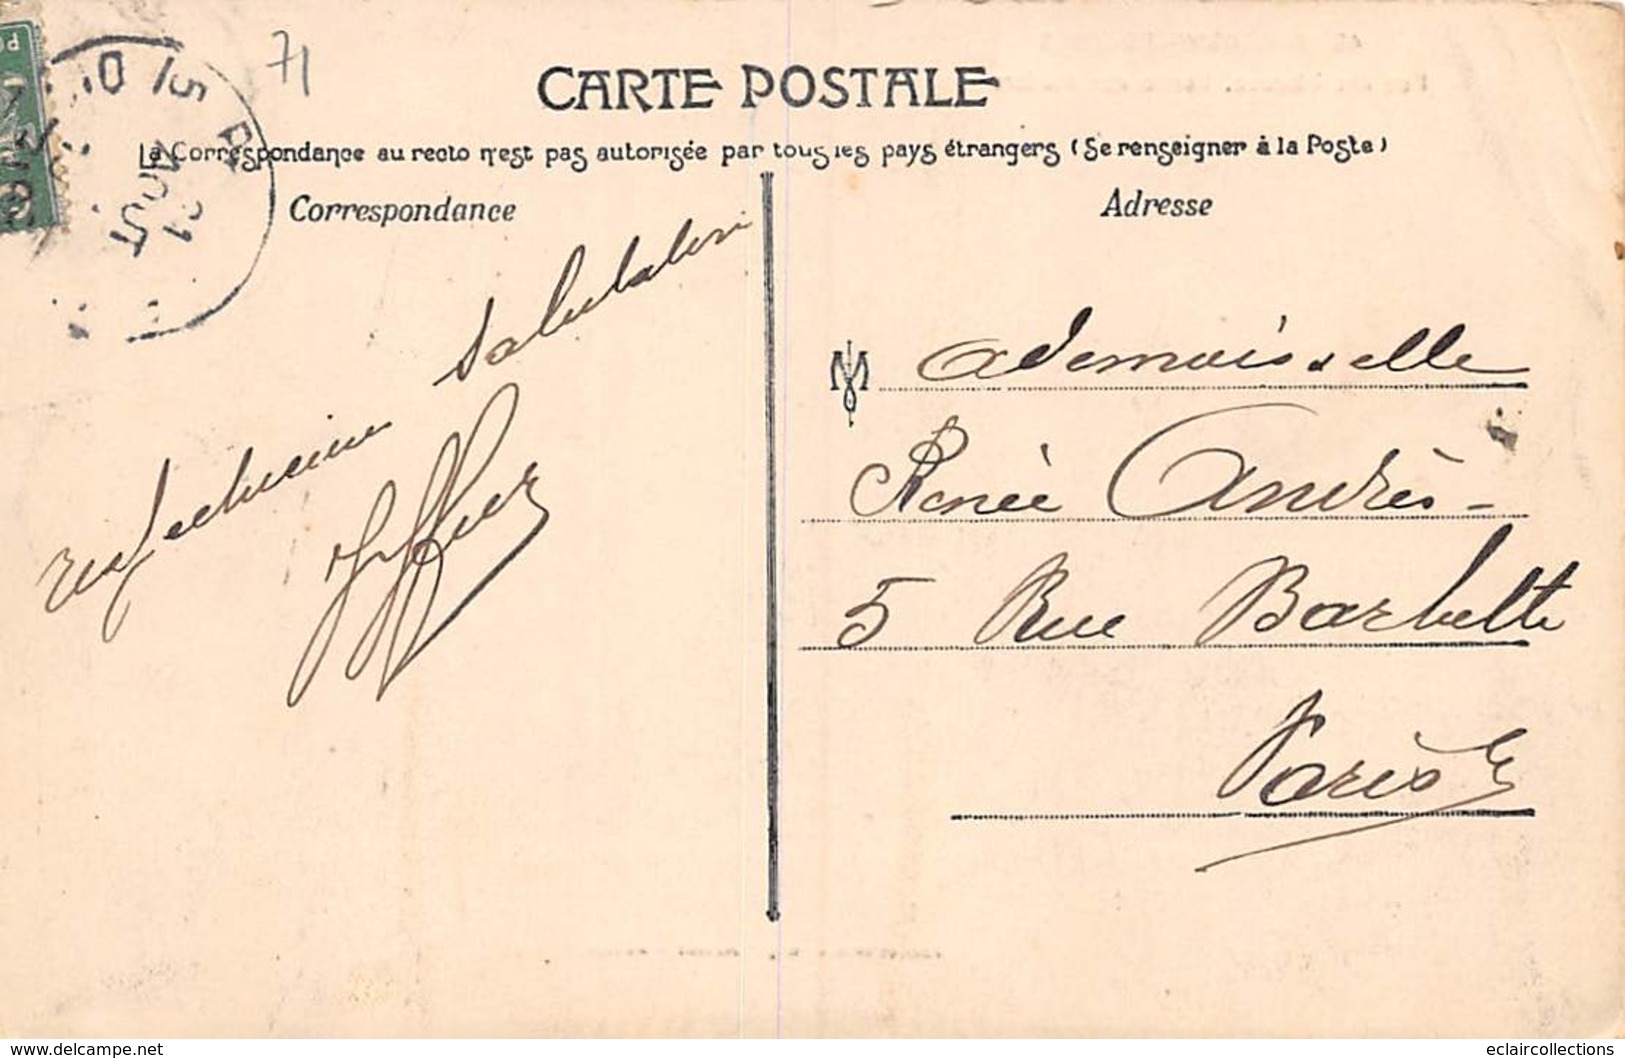 71
CARTE POSTALE
La Correspondance au recto n'est pas autorisée par tous les pays étrangers (Se renseigner à la Poste)
Correspondance
Adresse
21
AOUT
Salutation
respectueuses
Mademoiselle
Renée Andrès
5 Rue Barbette
Paris
www.delcampe.net
eclaircollections